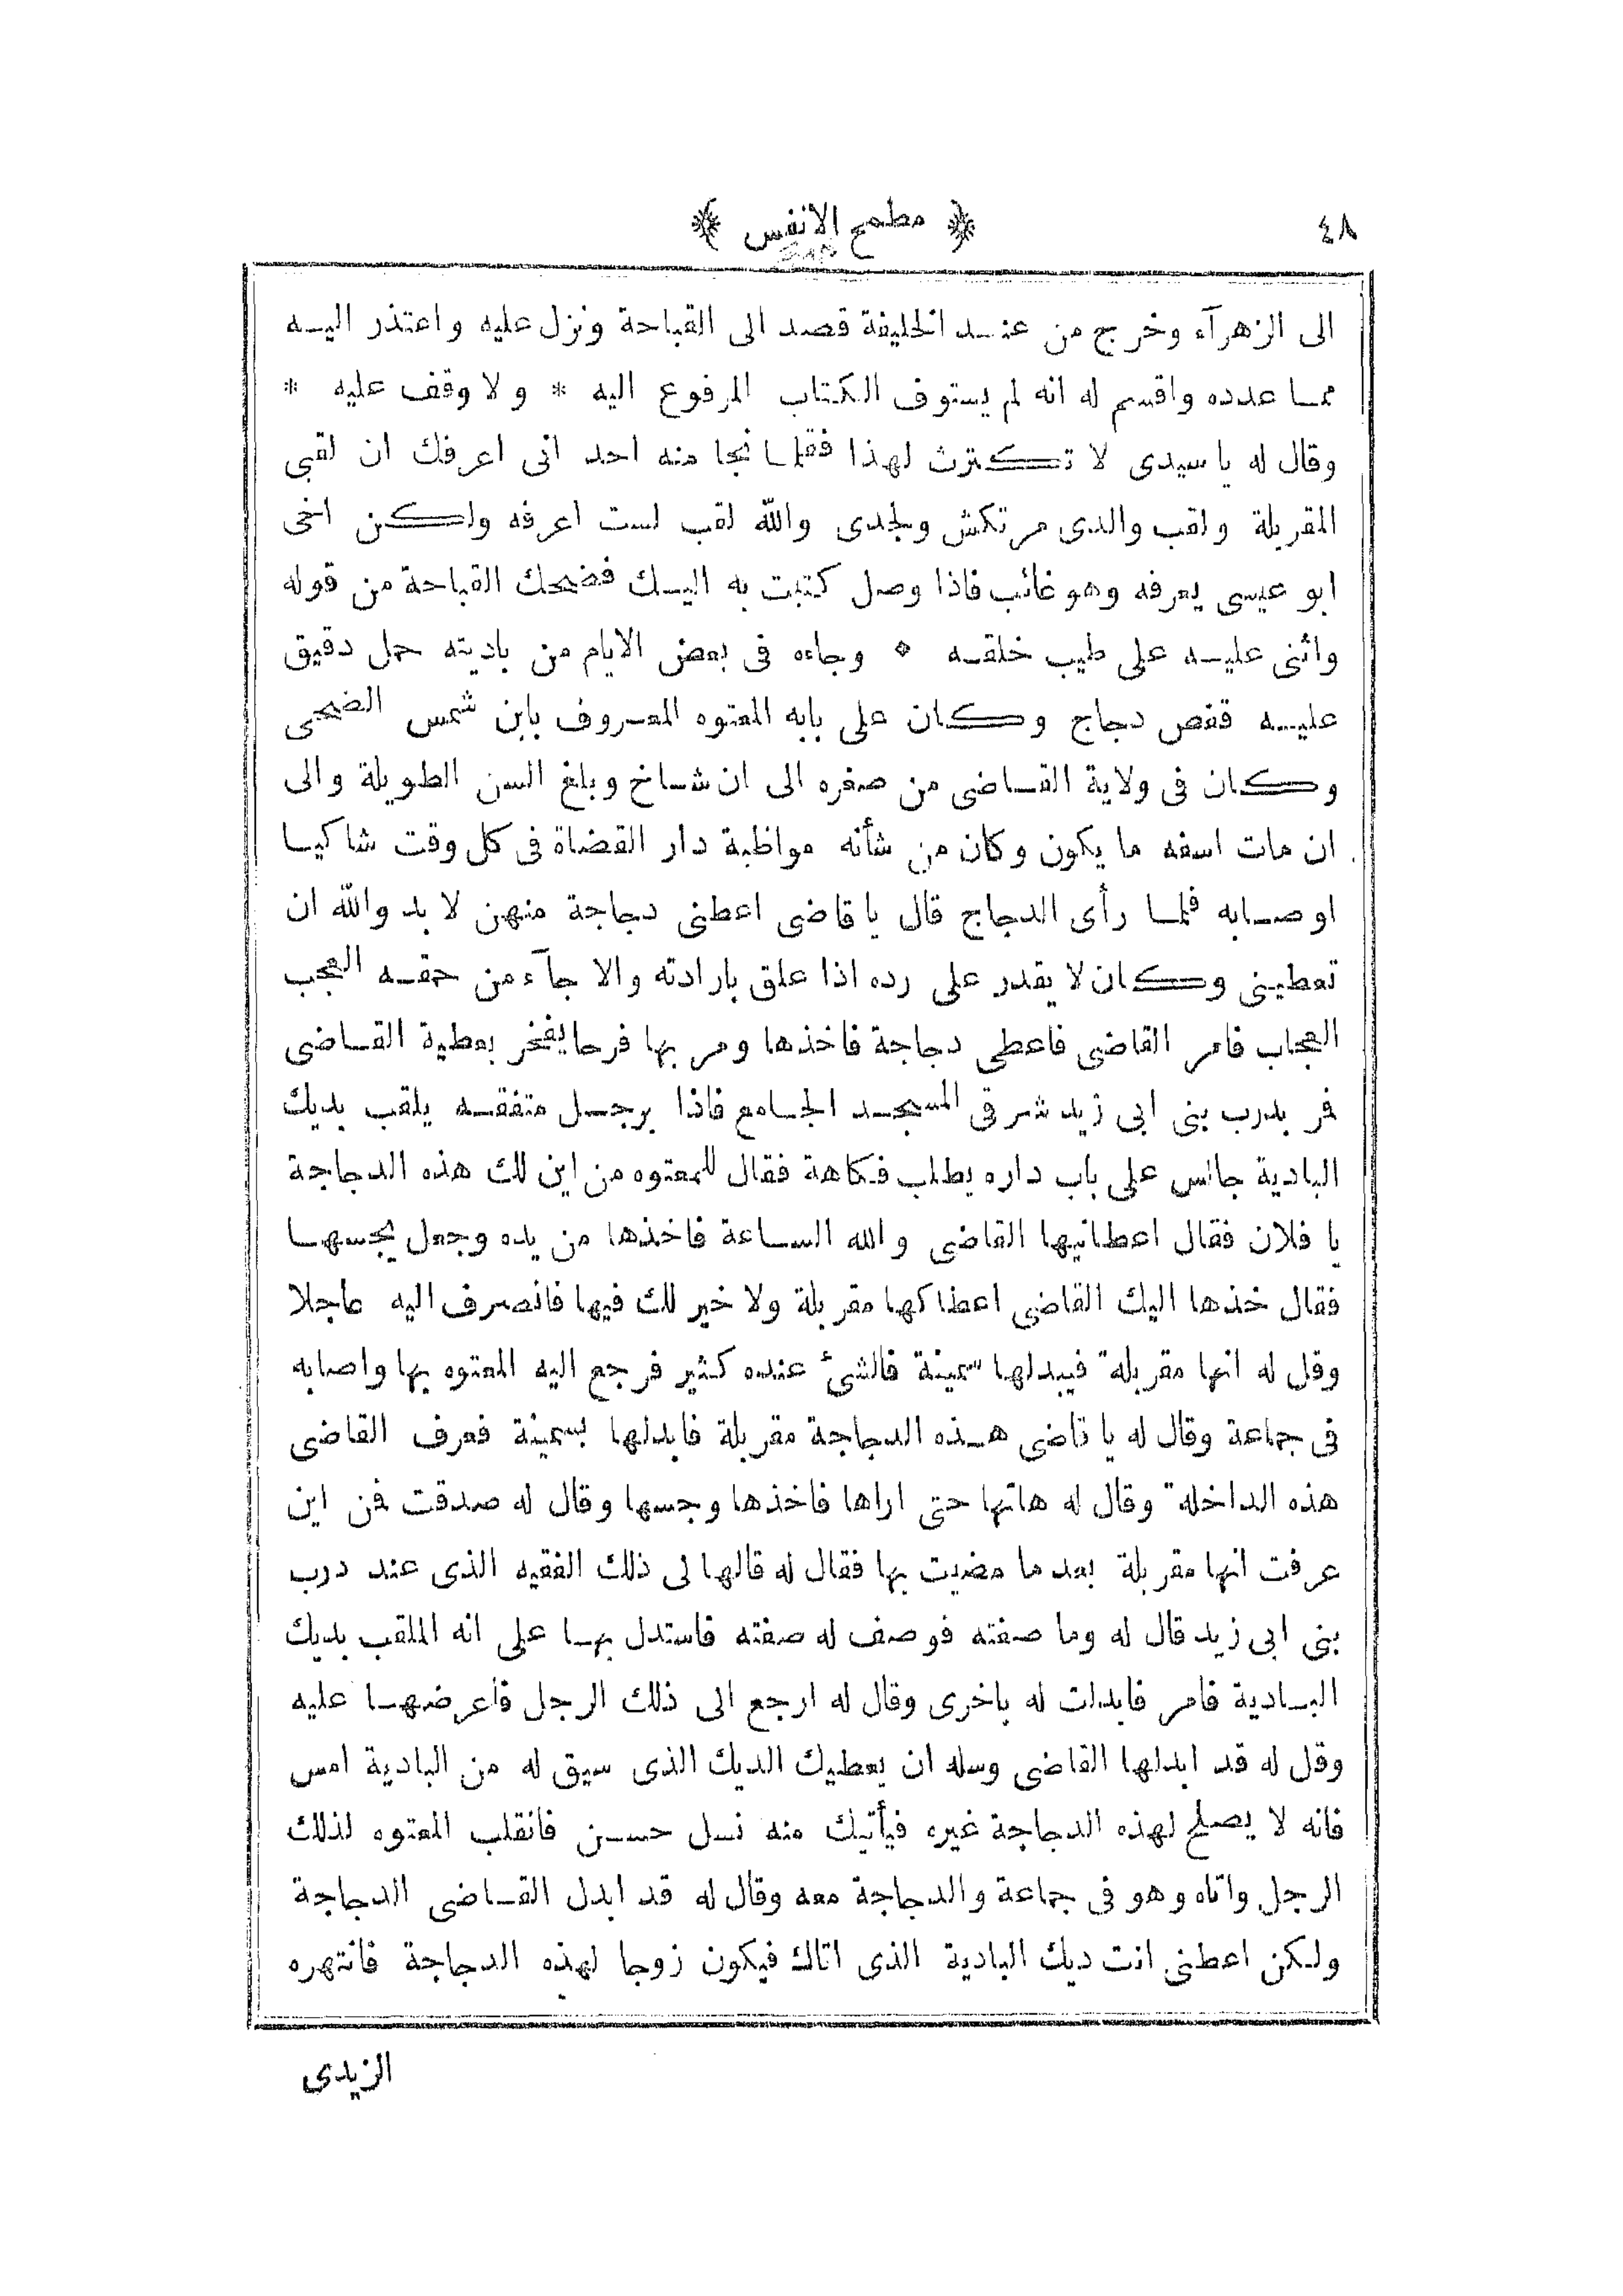 ٤٨ ﴿ مطمح الانفس ﴾
الى الزهرآء وخرج من عند الخليفة قصد الى القباحة ونزل عليه واعتذر اليه
مما عدده واقسم له انه لم يستوف الكتاب المرفوع اليه * ولا وقف عليه *
وقال له يا سيدى لا تكترث لهذا فقلما نجا منه احد انى اعرفك ان لقبى
المقربلة ولقب والدى مرتكش ولجدى والله لقب لست اعرفه ولكن اخى
ابو عيسى يعرفه وهو غائب فاذا وصل كتبت به اليك فضحك القباحة من قوله
واثنى عليه على طيب خلقه * وجاءه فى بعض الايام من باديته حمل دقيق
عليه قفص دجاج وكان على بابه المعتوه المعروف بابن شمس الضحى
وكان فى ولاية القاضى من صغره الى ان شاخ وبلغ السن الطويلة والى
ان مات اسفه ما يكون وكان من شأنه مواظبة دار القضاة فى كل وقت شاكيا
او صابه فلما رأى الدجاج قال يا قاضى اعطنى دجاجة منهن لا بد والله ان
تعطينى وكان لا يقدر على رده اذا علق بارادته والا جآء من حمقه العجب
العجاب فامر القاضى فاعطى دجاجة فاخذها ومر بها فرحا يفخر بعطية القاضى
فمر بدرب بنى ابى زيد شرقى المسجد الجامع فاذا برجل متفقه يلقب بديك
البادية جالس على باب داره يطلب فكاهة فقال للمعتوه من اين لك هذه الدجاجة
يا فلان فقال اعطانيها القاضى والله الساعة فاخذها من يده وجعل يجسها
فقال خذها اليك القاضى اعطاكها مقربلة ولا خير لك فيها فانصرف اليه عاجلا
وقل له انها مقربلة فيبدلها سمينة فالشئ عنده كثير فرجع اليه المعتوه بها واصابه
فى جماعة وقال له يا قاضى هذه الدجاجة مقربلة فابدلها بسمينة فعرف القاضى
هذه الداخلة وقال له هاتها حتى اراها فاخذها وجسها وقال له صدقت فمن اين
عرفت انها مقربلة بعد ما مضيت بها فقال له قالها لى ذلك الفقيه الذى عند درب
بنى ابى زيد قال له وما صفته فوصف له صفته فاستدل بها على انه الملقب بديك
البادية فامر فابدلت له باخرى وقال له ارجع الى ذلك الرجل فاعرضها عليه
وقل له قد ابدلها القاضى وسله ان يعطيك الديك الذى سيق له من البادية امس
فانه لا يصلح لهذه الدجاجة غيره فيأتيك منه نسل حسن فانقلب المعتوه لذلك
الرجل واتاه وهو فى جماعة والدجاجة معه وقال له قد ابدل القاضى الدجاجة
ولكن اعطنى انت ديك البادية الذى اتاك فيكون زوجا لهذه الدجاجة فانتهره
الزيدى